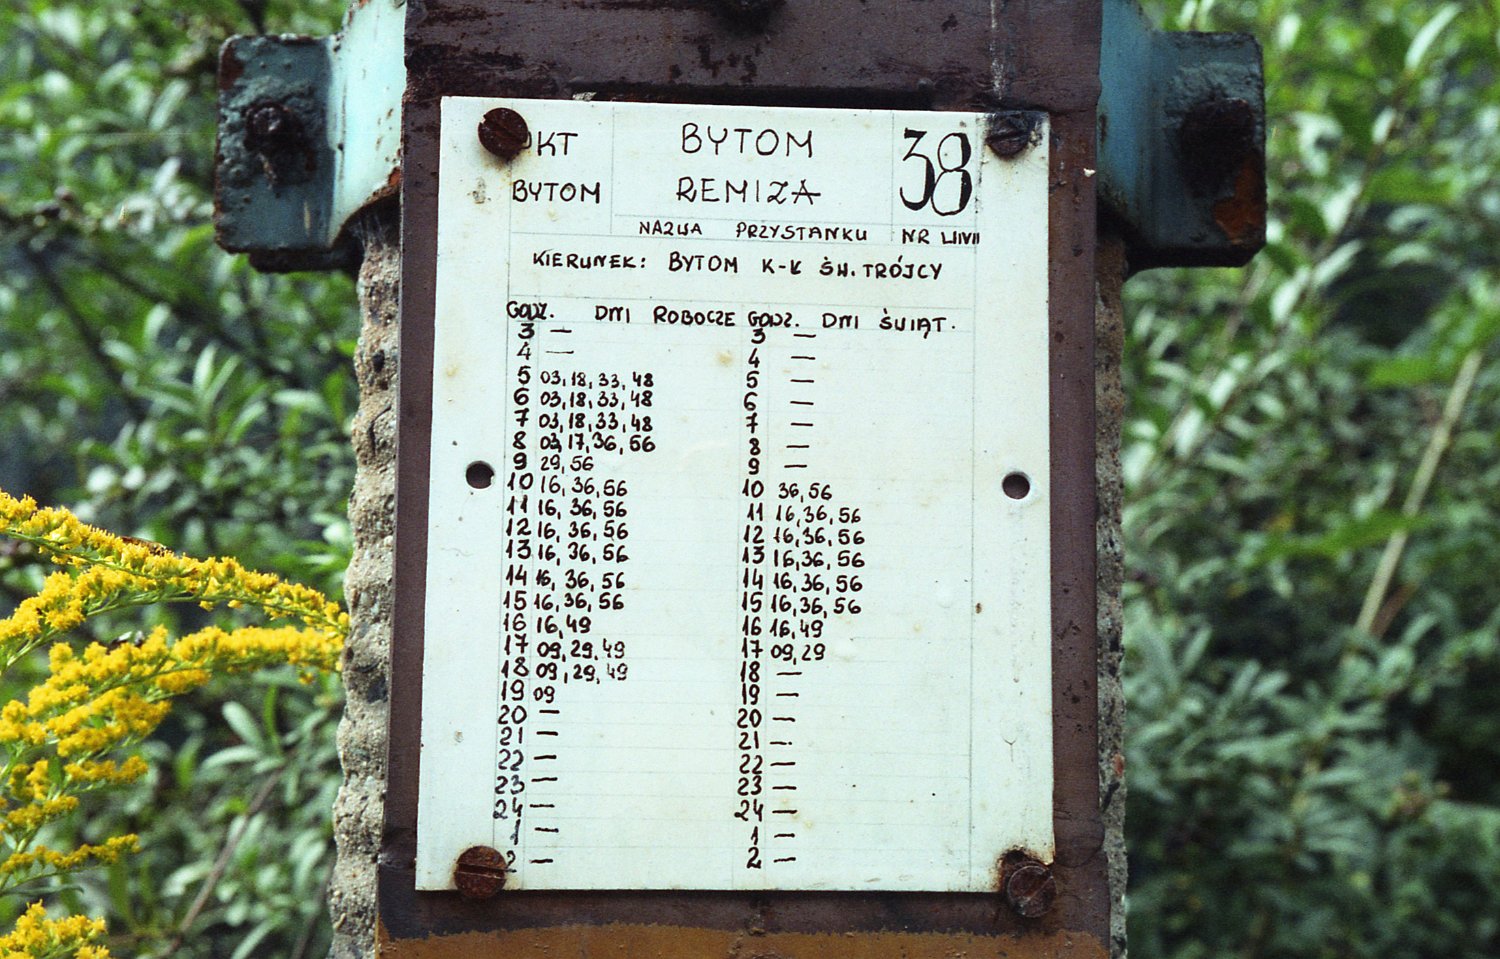 PKT BYTOM 38
BYTOM REMIZA
NAZWA PRZYSTANKU NR LINII
KIERUNEK: BYTOM K-Ł ŚW. TRÓJCY
GODZ. DNI ROBOCZE GODZ. DNI ŚWIĄT.
3 — 3 —
4 — 4 —
5 03,18,33,48 5 —
6 03,18,33,48 6 —
7 03,18,33,48 7 —
8 03,17,36,56 8 —
9 29,56 9 —
10 16,36,56 10 36,56
11 16,36,56 11 16,36,56
12 16,36,56 12 16,36,56
13 16,36,56 13 16,36,56
14 16,36,56 14 16,36,56
15 16,36,56 15 16,36,56
16 16,49 16 16,49
17 09,29,49 17 09,29
18 09,29,49 18 —
19 09 19 —
20 — 20 —
21 — 21 —
22 — 22 —
23 — 23 —
24 — 24 —
1 — 1 —
2 — 2 —